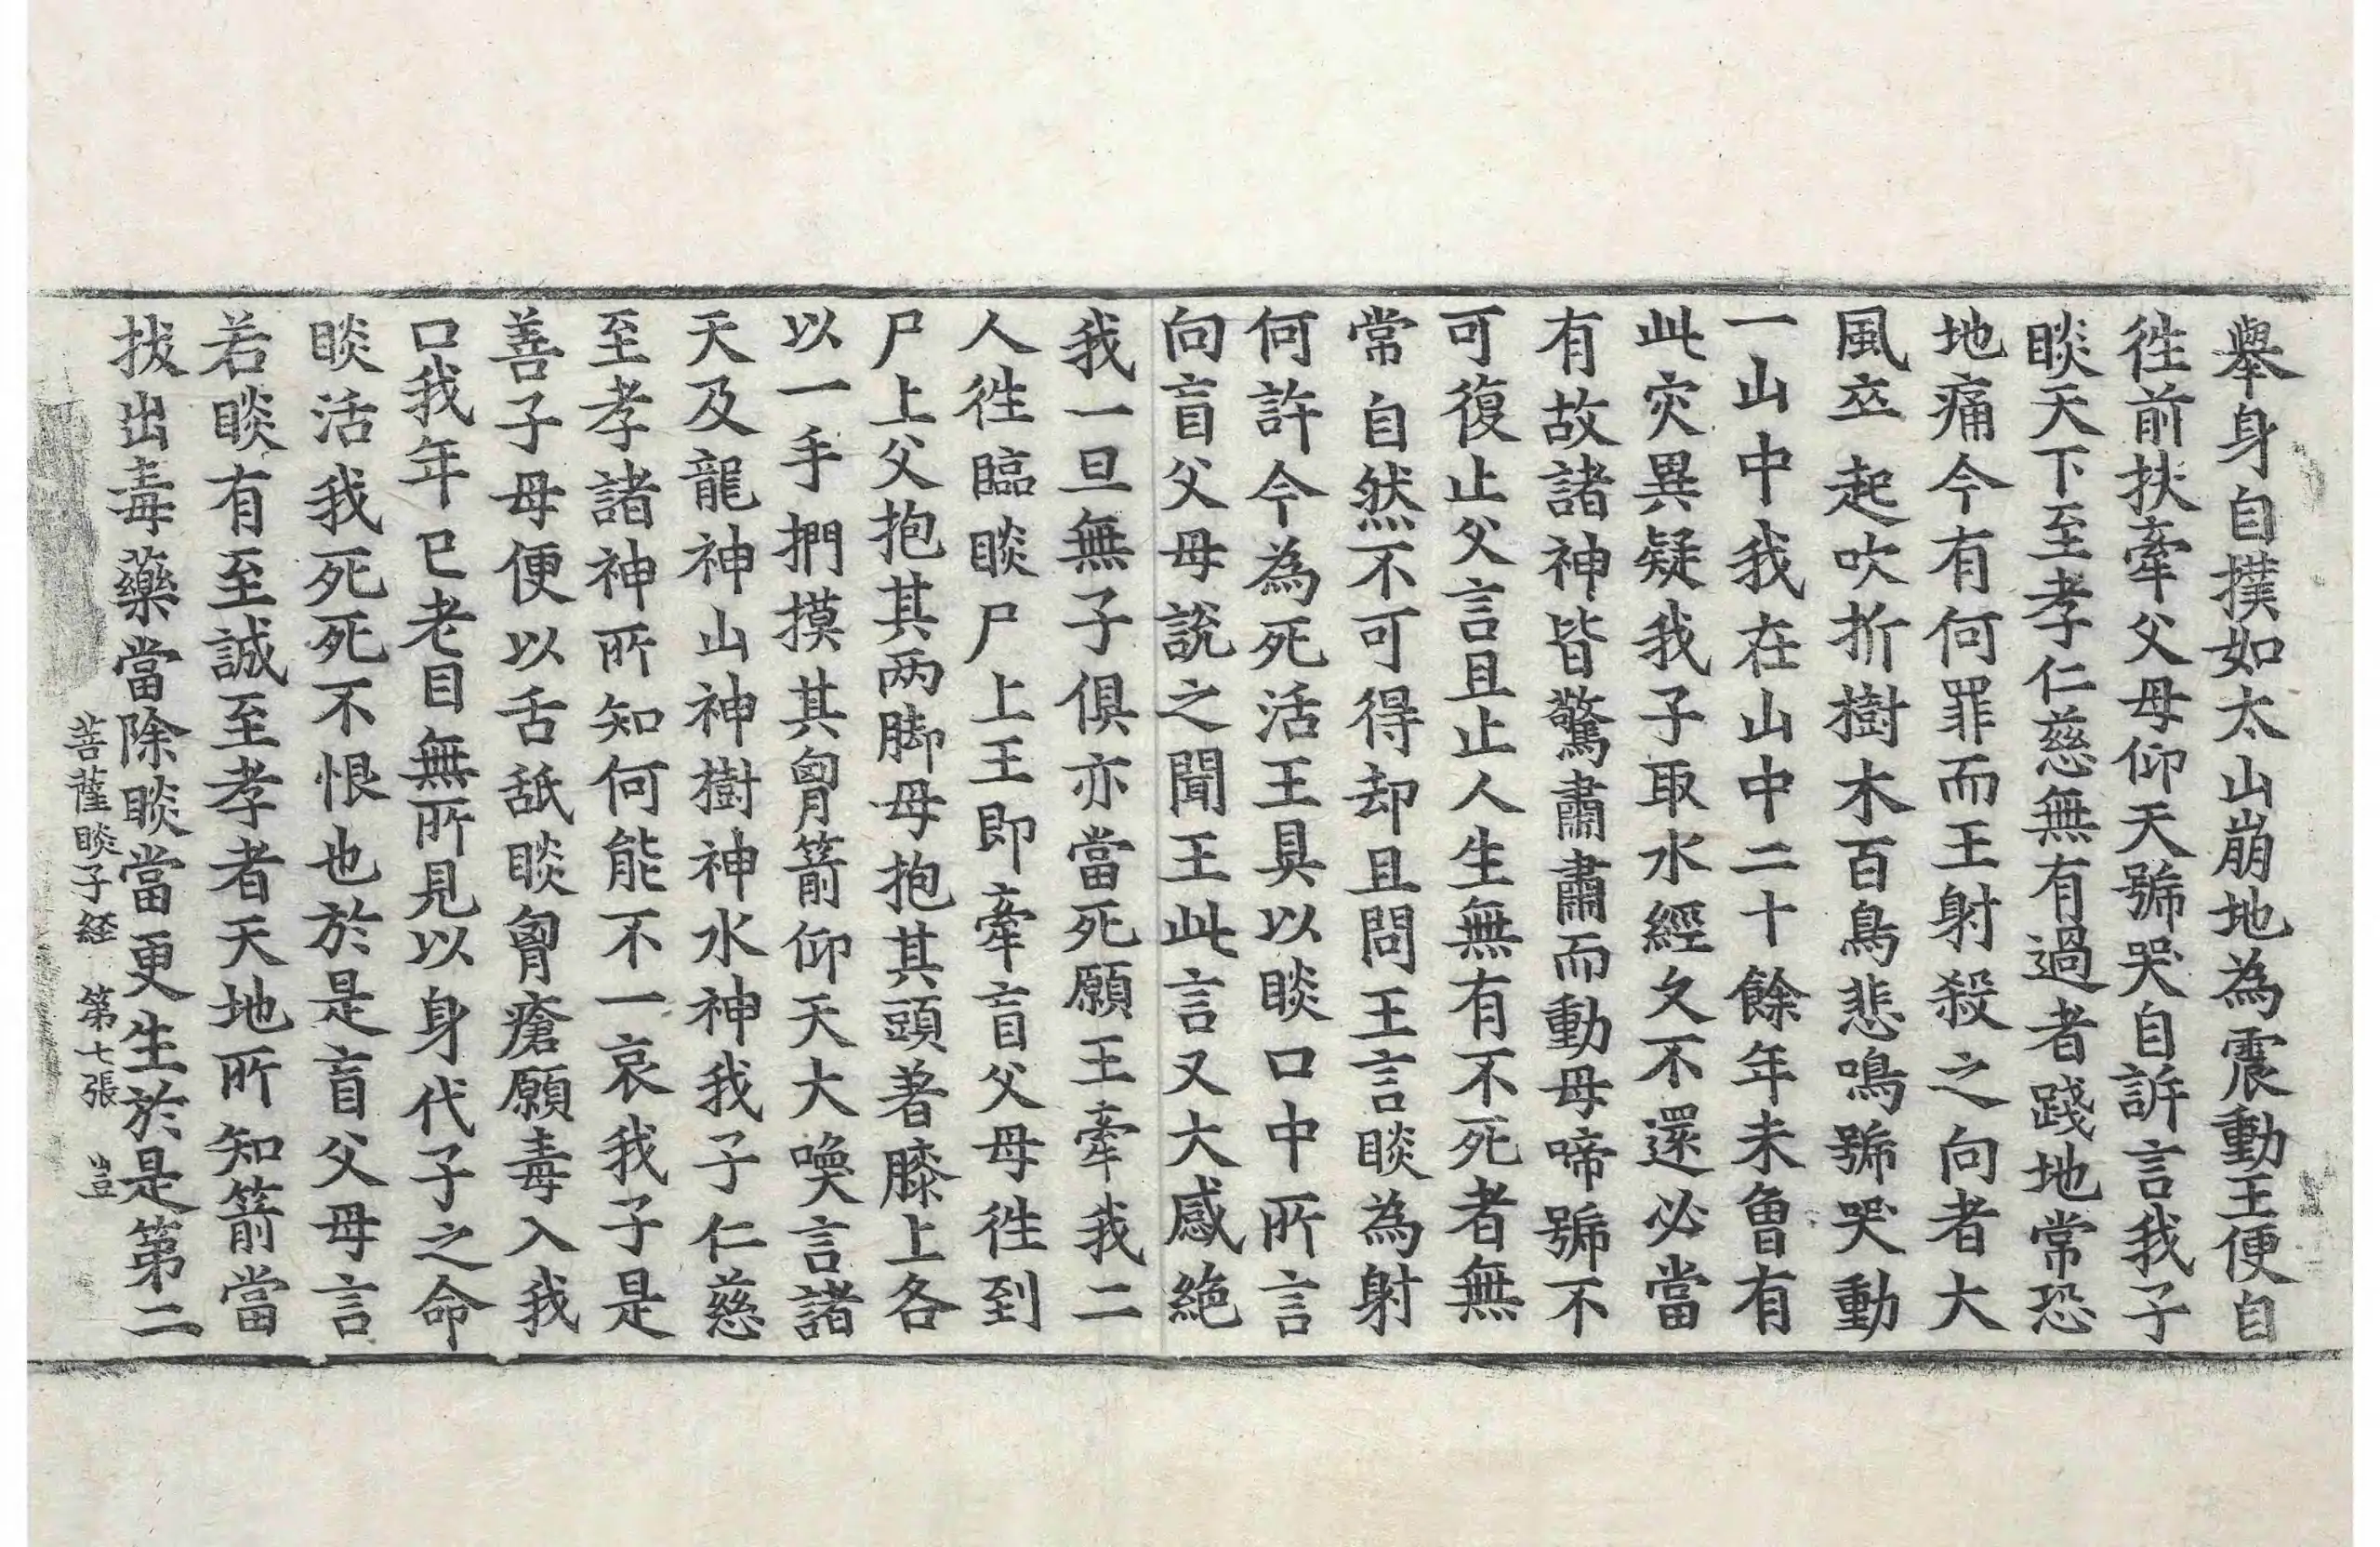 舉身自撲如太山崩地為震動王便自
徃前扶牽父母仰天號哭自訴言我子
睒天下至孝仁慈無有過者踐地常恐
地痛今有何罪而王射殺之向者大
風卒起吹折樹木百鳥悲鳴號哭動
一山中我在山中二十餘年未曾有
此灾異疑我子取水經久不還必當
有故諸神皆驚肅肅而動母啼號不
可復止父言且止人生無有不死者無
常自然不可得却且問王言睒為射
何許今為死活王具以睒口中所言
向盲父母說之聞王此言又大感絕
我一旦無子俱亦當死願王牽我二
人徃臨睒尸上王即牽盲父母徃到
尸上父抱其两脚母抱其頭著膝上各
以一手捫摸其胷箭仰天大喚言諸
天及龍神山神樹神水神我子仁慈
至孝諸神所知何能不一哀我子是
善子母便以舌舐睒胷瘡願毒入我
口我年已老目無所見以身代子之命
睒活我死死不恨也於是盲父母言
若睒有至誠至孝者天地所知箭當
拔出毒藥當除睒當更生於是第二
菩薩睒子経 第七張 豈